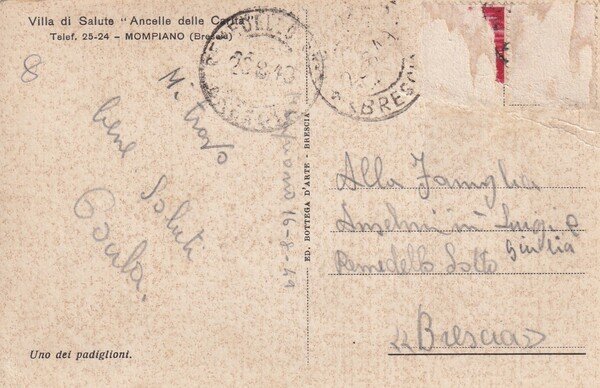 Villa di Salute "Ancelle della Carità"
Telef. 25-24 - MOMPIANO (Brescia)
8
Mi trovo
bene
Saluti
Paola.
Mompiano 16-8-49
ED. BOTTEGA D'ARTE - BRESCIA
BRESCIA
Alla Famiglia
Anselmini Luigi e
Giulia
Remedello Sotto
«Brescia»
Uno dei padiglioni.